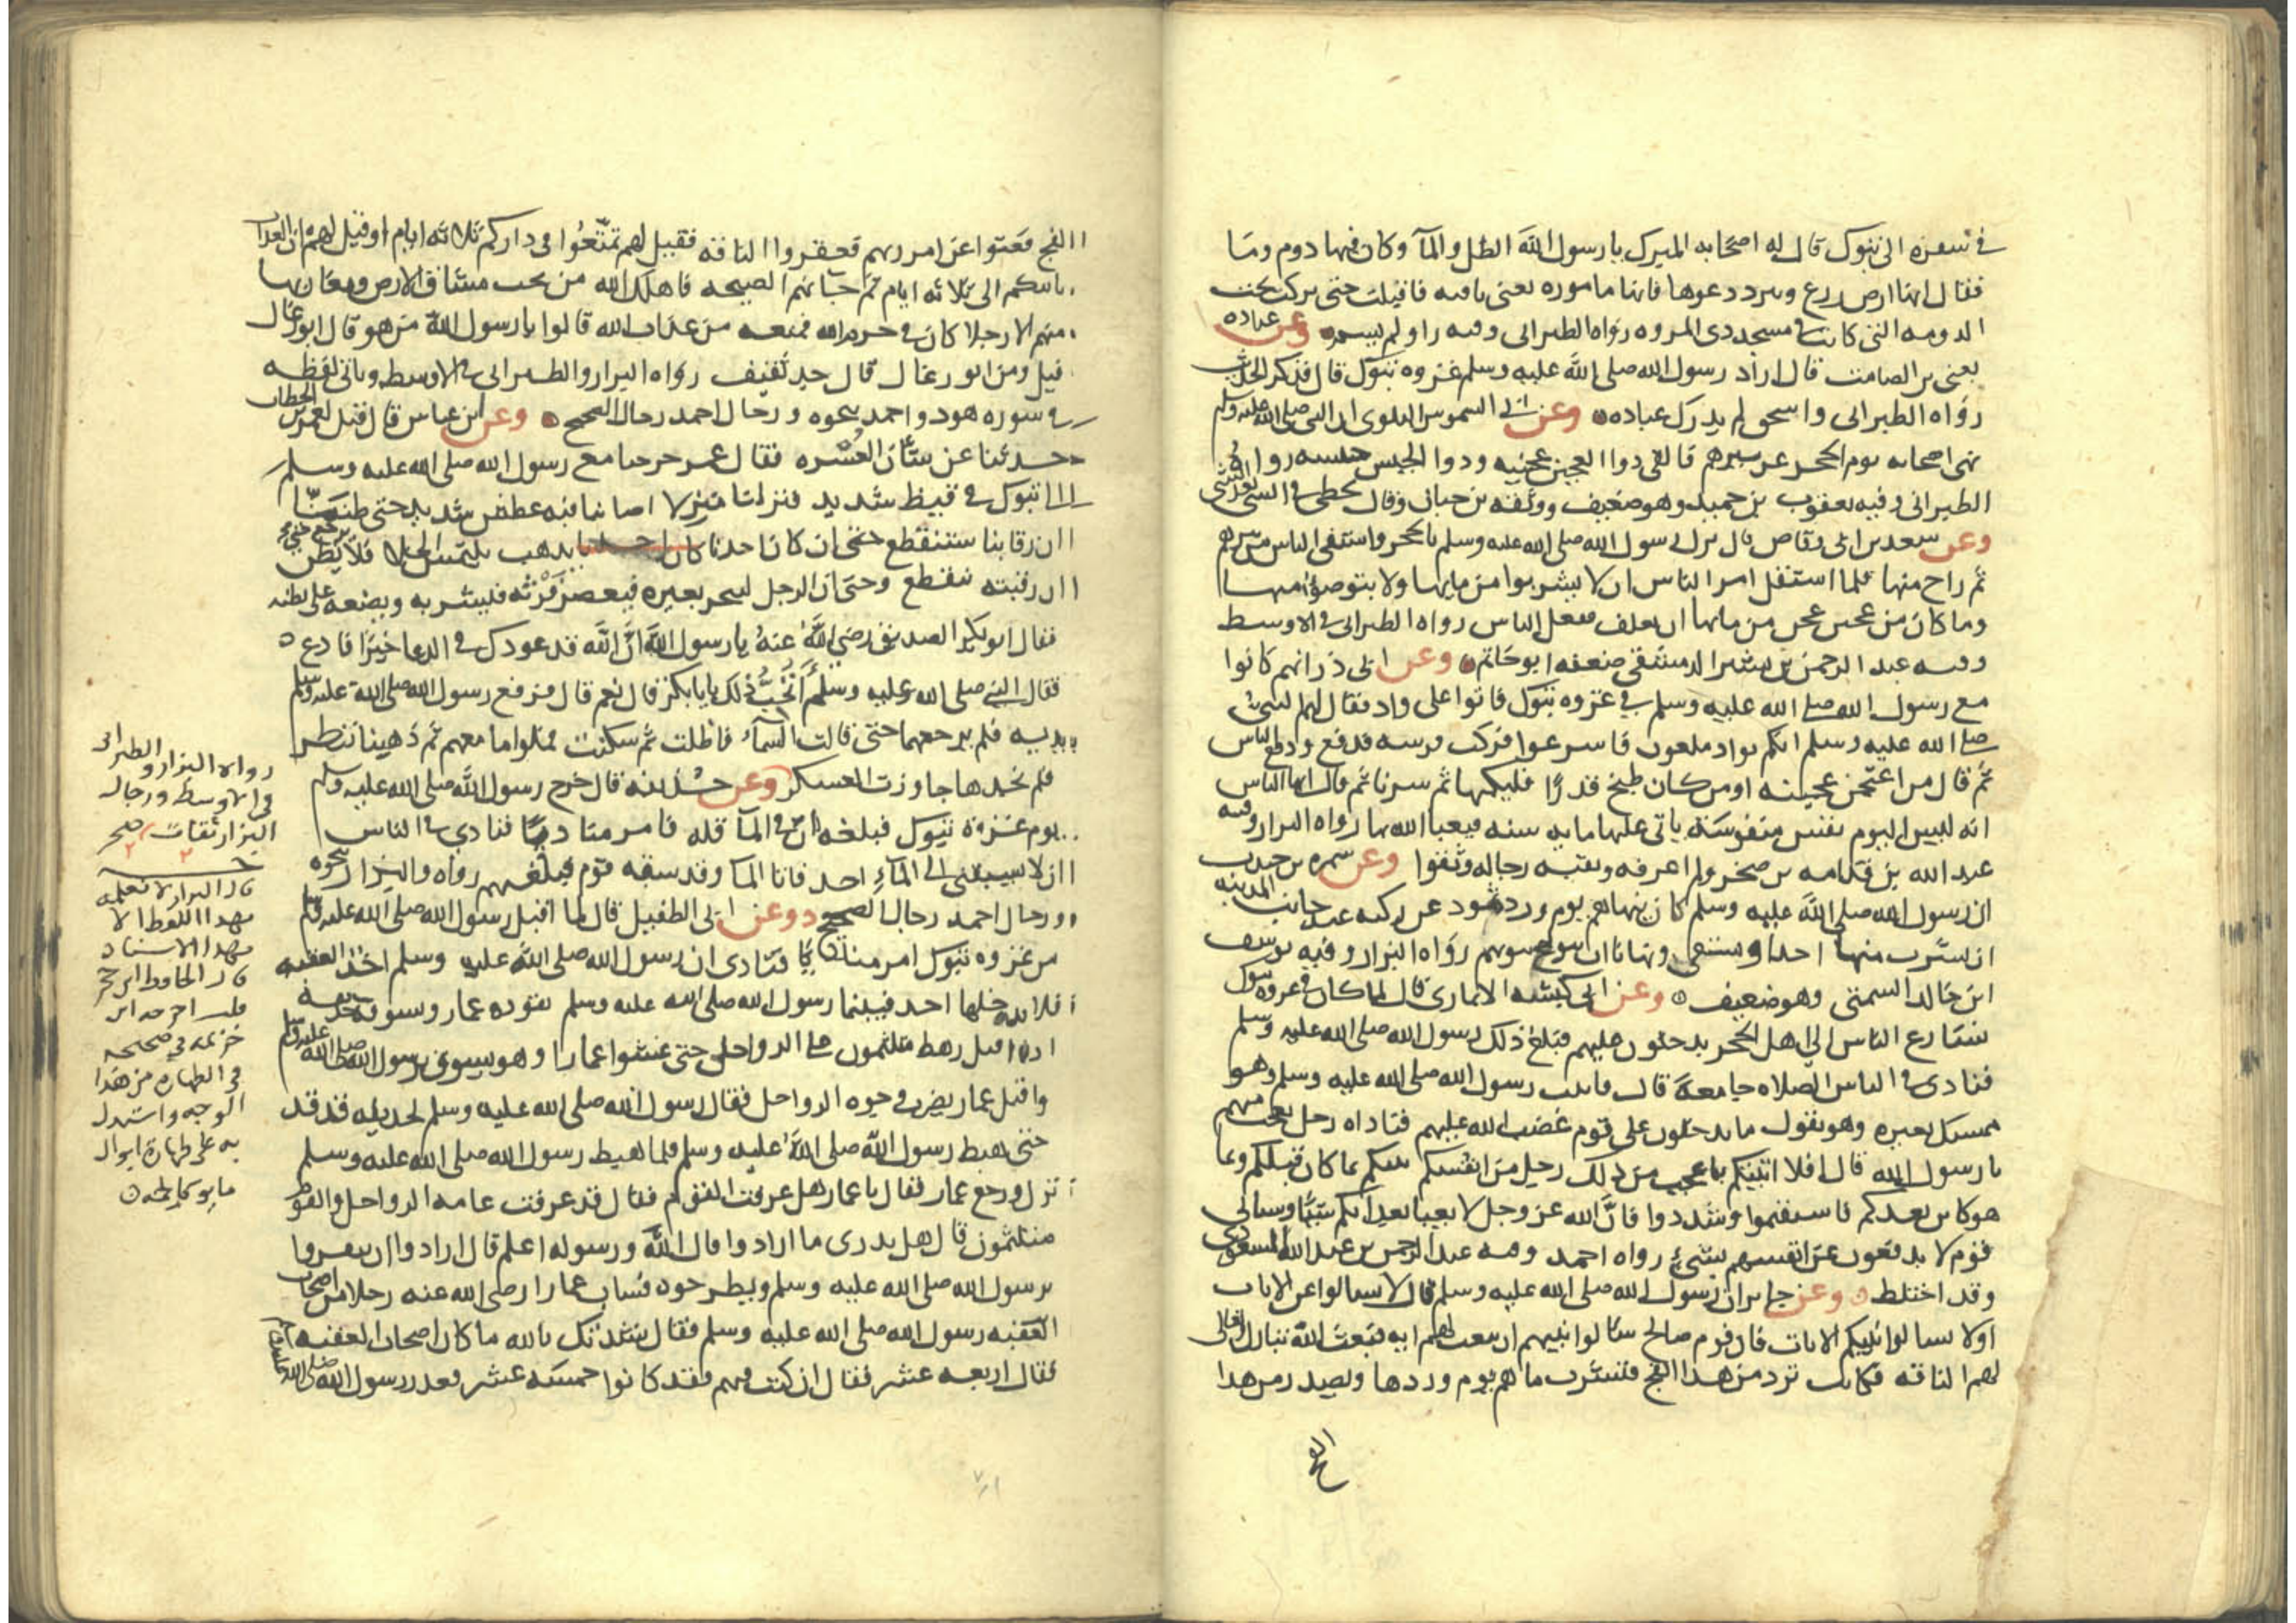 في سفره الى تبوك قال له اصحابه المبرك يا رسول الله الظل والمآ وكان فيها دوم وما
فقال انها ارض زرع وبرد دعوها فانها مامورة يعني ناقته فاقبلت حتى بركت تحت
الدومه التي كانت في مسجد ذي المروه رواه الطبراني وفيه راو لم يسم وعن عباده
يعني بن الصامت قال اراد رسول الله صلى الله عليه وسلم غزوه تبوك قال فذكر الحديث
رواه الطبراني واسحق لم يدرك عباده وعن ابي الشموس البلوى ان النبي صلى الله عليه وسلم
نهى اصحابه يوم الحجر عن بيرهم فالقى ذوا العجين عجينه وذوا الحيس حيسه رواه
الطبراني وفيه يعقوب بن حميد وهو ضعيف ووثقه بن حبان وقال يخطى في الشي بعد الشي
وعن سعد بن ابى وقاص قال نزل رسول الله صلى الله عليه وسلم بالحجر واستقى الناس من بيرهم
ثم راح منها فلما استقل امر الناس ان لا يشربوا من مايها ولا يتوضوا منها
وما كان من عجين عجن من مايها ان يعلف ففعل الناس رواه الطبراني في الاوسط
وفيه عبد الرحمن بن بشير الدمشقي ضعفه ابو حاتم وعن ابى ذر انهم كانوا
مع رسول الله صلى الله عليه وسلم في غزوه تبوك فاتوا على واد فقال لهم النبي
صلى الله عليه وسلم انكم بواد ملعون فاسرعوا فركب فرسه فدفع ودفع الناس
ثم قال من اعتجن عجينه او من كان طبخ قدرا فليكبها ثم سرنا ثم قال يا ايها الناس
انه ليس اليوم نفس منفوسة ياتى عليها مايه سنه فيعبا الله بها رواه البزار وفيه
عبد الله بن قدامه بن صخر ولم اعرفه وبقيه رجاله وثقوا وعن سمره بن جندب
ان رسول الله صلى الله عليه وسلم كان ينهاهم يوم ورد ثمود عن ركيه عند جانب المدينه
ان يشرب منها احد او يستقى ونهانا ان نتولج بيوتهم رواه البزار وفيه يوسف
ابن خالد السمتي وهو ضعيف وعن ابى كبشه الانماري قال لما كان في غزوه تبوك
تسارع الناس الى اهل الحجر يدخلون عليهم فبلغ ذلك رسول الله صلى الله عليه وسلم
فنادى في الناس الصلاه جامعة قال فاتيت رسول الله صلى الله عليه وسلم وهو
ممسك بعيره وهو يقول ما تدخلون على قوم غضب الله عليهم فناداه رجل نعجب منهم
يا رسول الله قال افلا انبئكم باعجب من ذلك رجل من انفسكم ينبيكم بما كان قبلكم وما
هو كاين بعدكم فاستقيموا وسددوا فان الله عز وجل لا يعبا بعذابكم شيئا وسياتي
قوم لا يدفعون عن انفسهم بشيئ رواه احمد وفيه عبد الرحمن بن عبد الله المسعودي
وقد اختلط وعن جابر ان رسول الله صلى الله عليه وسلم قال لا تسالوا عن الايات
اولا تسالوا نبيكم الايات فان قوم صالح سالوا نبيهم ان يبعث لهم ايه فبعث الله تبارك وتعالى
لهم الناقه فكانت ترد من هذا الفج فتشرب ماهم يوم وردها وتصدر من هذا
الفج
الفج فعتوا عن امر ربهم فعقروا الناقه فقيل لهم تمتعوا في داركم ثلاثه ايام او قيل لهم ان العذاب
ياتيكم الى ثلاثه ايام ثم جاتهم الصيحه فاهلك الله من تحت مشارق الارض ومغاربها
منهم الا رجلا كان في حرم الله فمنعه من عذاب الله قالوا يا رسول الله من هو قال ابو رغال
قيل ومن ابو رغال قال جد ثقيف رواه البزار والطبراني في الاوسط وياتي لفظه
في سوره هود واحمد بنحوه ورجال احمد رجال الصحيح وعن ابن عباس قال قيل لعمر بن الخطاب
حدثنا عن شان العسره فقال عمر خرجنا مع رسول الله صلى الله عليه وسلم
الى تبوك في قيظ شديد فنزلنا منزلا اصابنا فيه عطش شديد حتى ظننا
ان رقابنا ستنقطع حتى ان كان احدنا يذهب يلتمس الخلا فلا يرجع حتى يظن
ان رقبته تنقطع وحتى ان الرجل لينحر بعيره فيعصر فرثه فيشربه ويضعه على بطنه
فقال ابو بكر الصديق رضي الله عنه يا رسول الله ان الله قد عودك في الدعا خيرا فادع
فقال النبي صلى الله عليه وسلم اتحب ذلك يا ابا بكر قال نعم قال فرفع رسول الله صلى الله عليه وسلم
يديه فلم يرجعهما حتى قالت السمآ فاظلت ثم سكبت فملوا ما معهم ثم ذهبنا ننظر
فلم نجدها جاوزت العسكر وعن حذيفه قال خرج رسول الله صلى الله عليه وسلم
يوم غزوة تبوك فبلغه ان في المآ قله فامر مناديا فنادى في الناس
ان لا يسبقني الى المآء احد فاتى المآ وقد سبقه قوم فلعنهم رواه والبزار بنحوه
ورجال احمد رجال الصحيح وعن ابى الطفيل قال لما اقبل رسول الله صلى الله عليه وسلم
من غزوه تبوك امر مناديا فنادى ان رسول الله صلى الله عليه وسلم اخذ العقبه
فلا ياخذها احد فبينما رسول الله صلى الله عليه وسلم يقوده عمار ويسوقه حذيفه
اذ اقبل رهط متلثمون على الرواحل حتى غشوا عمارا وهو يسوق برسول الله صلى الله عليه وسلم
واقبل عمار يضرب وجوه الرواحل فقال رسول الله صلى الله عليه وسلم لحذيفه قد قد
حتى هبط رسول الله صلى الله عليه وسلم فلما هبط رسول الله صلى الله عليه وسلم
نزل ورجع عمار فقال يا عمار هل عرفت القوم فقال قد عرفت عامه الرواحل والقوم
متلثمون قال هل تدرى ما ارادوا قال الله ورسوله اعلم قال ارادوا ان ينفروا
برسول الله صلى الله عليه وسلم ويطرحوه فساب عمارا رضى الله عنه رجلا من اصحاب
العقبه رسول الله صلى الله عليه وسلم فقال نشدتك بالله ما كان اصحاب العقبه
فقال اربعه عشر فقال ان كنت فيهم فقد كانوا خمسه عشر فعدد رسول الله صلى الله عليه وسلم
رواه البزار والطبرانى
فى الاوسط ورجال
البزار ثقات صح
قال البزار لا نعلمه
بهذا اللفظ الا
بهذا الاسناد
قال الحافظ ابن حجر
قلت اخرجه ابن
خزيمه في صحيحه
في الطهاره من هذا
الوجه واستدل
به على طهارة ابوال
ما يوكل لحمه